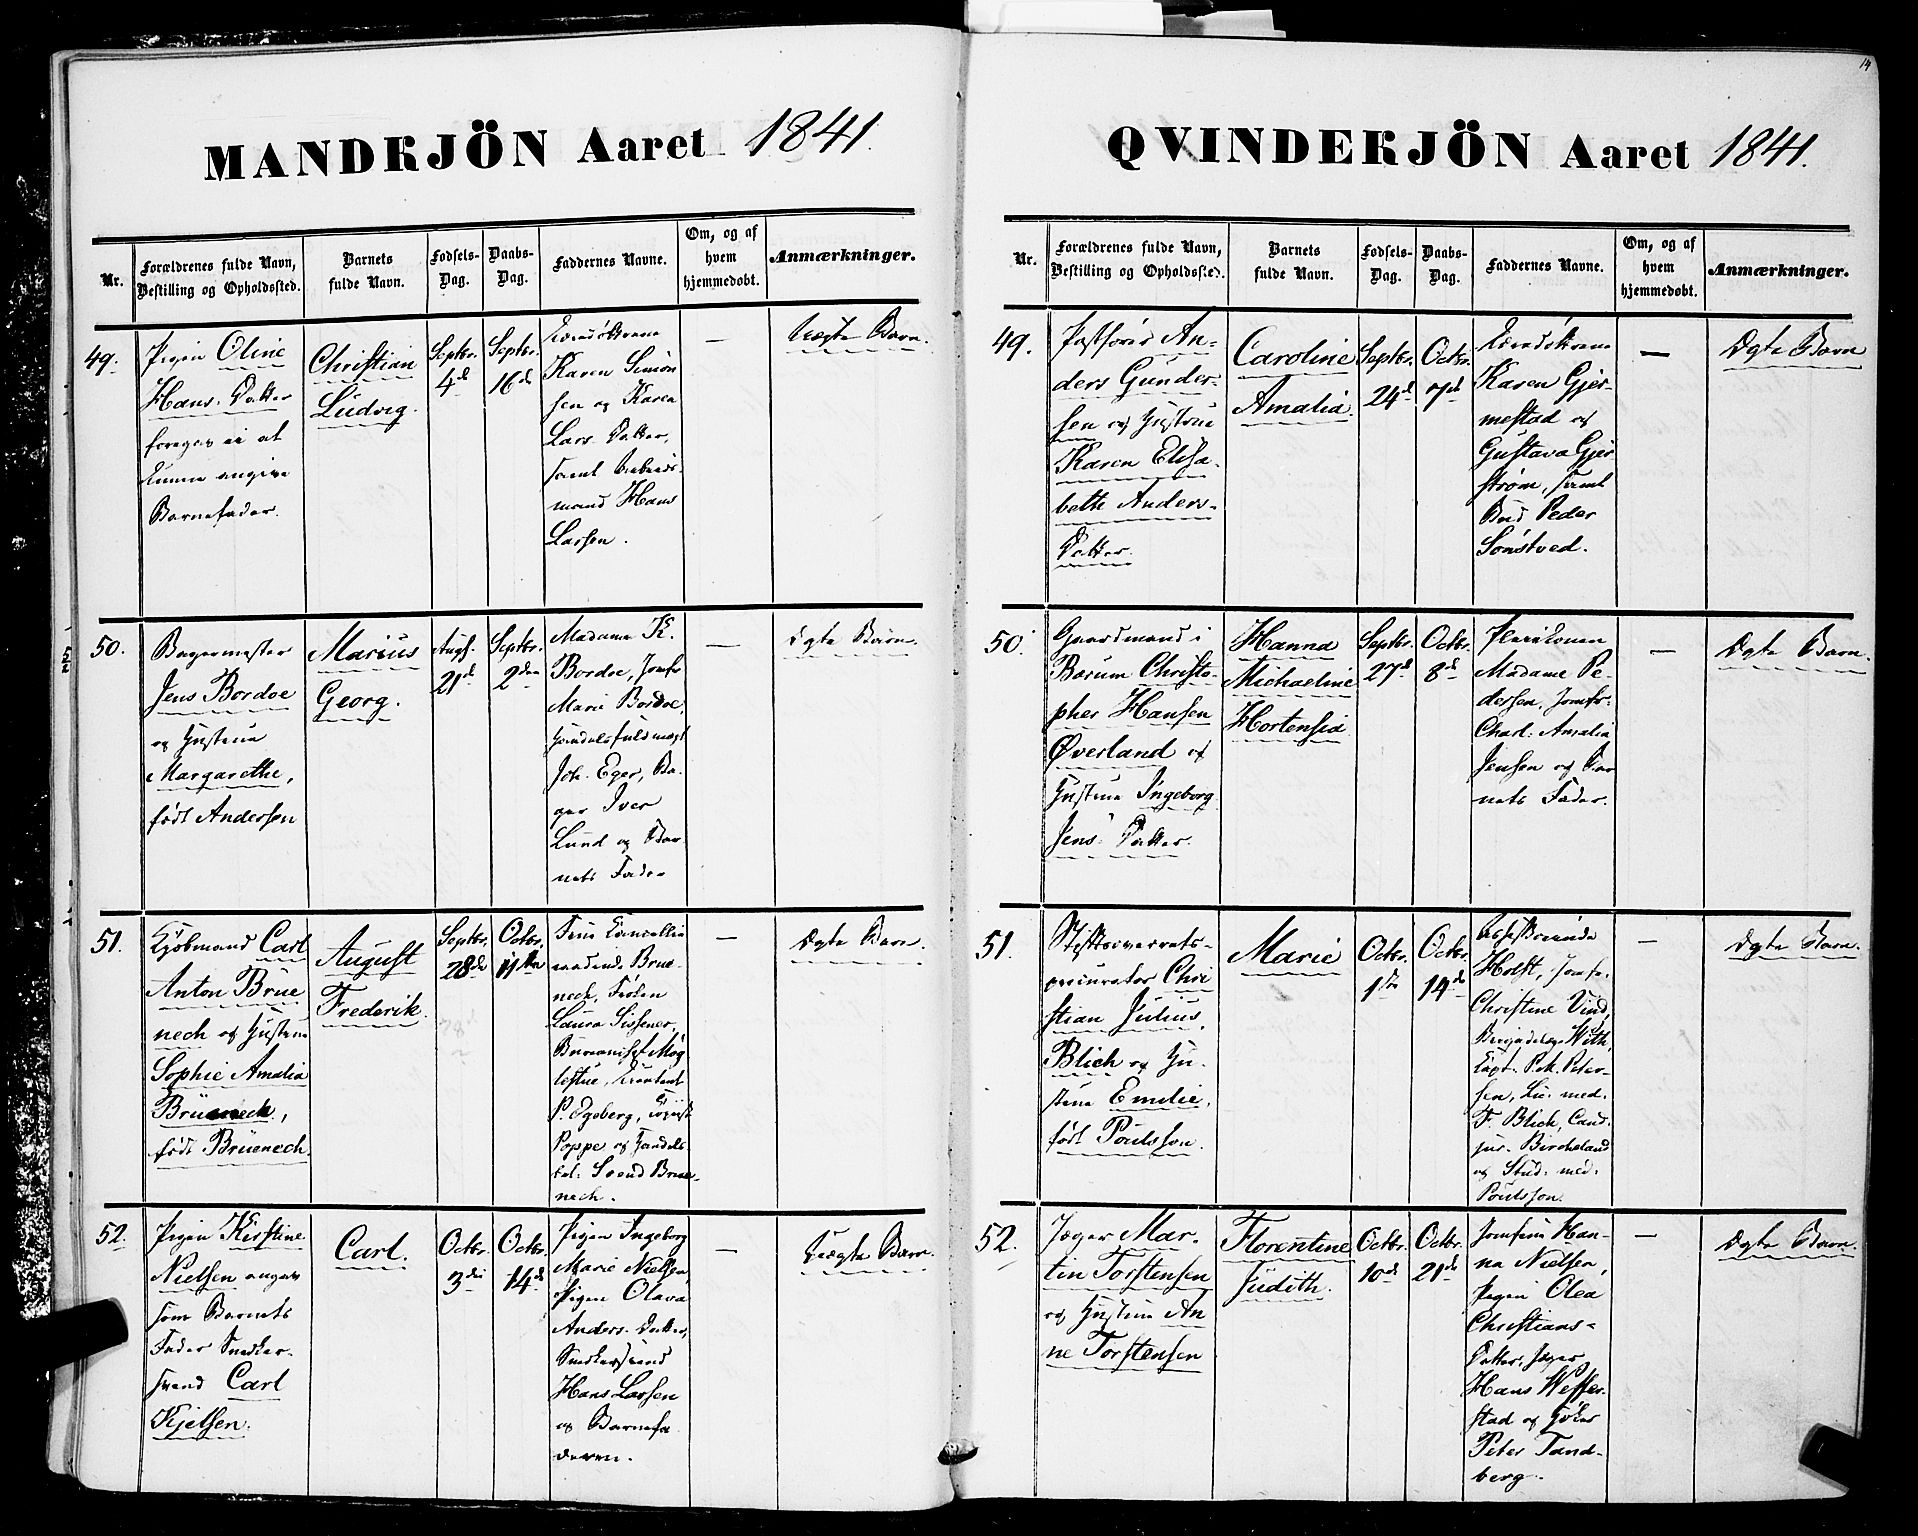 14
MANDKJÖN Aaret 1841.
Nr.
Forældrenes fulde Navn,
Bestilling og Opholdssted.
Barnets
fulde Navn.
Fødsels-
Dag.
Daabs-
Dag.
Faddernes Navne.
Om, og af
hvem
hjemmedøbt.
Anmærkninger.
49.
Pigen Oline
Hans-Datter
foregav ei at
kunne angive
Barnefader.
Christian
Ludvig.
Septbr.
4de
Septbr.
16de
Karen Simon
sen og Karen
Lars-Datter,
samt Arbeids-
mand Hans
Larsen.
—
Uægte Barn.
50.
Bagermester
Jens Bordoe
og Hustrue
Margarethe,
født Andersen
Marius
Georg.
Augs.
21de
Septbr.
2den
Madame K.
Bordoe, Jomfr
Marie Bordoe,
Handelsfuldmægt
Joh. Eger, Ba-
ger Iver
Lund og Bar
nets Fader
—
Ægte Barn.
51.
Kjøbmand Carl
Anton Brüe
nech og Hustrue
Sophie Amalia
Brüenech,
født Brüenech.
August
Frederik.
Septbr.
28de
Octbr.
11te
Brue-
nech, Frøken
Laura Sissener,
P. Egeberg,
Poppe og Handels
Svend Brue-
nech.
—
Ægte Barn.
52.
Pigen Kirstine
Nielsen angav
som Barnets
Fader Snedker-
svend Carl
Kjelsen.
Carl.
Octbr.
3die
Octbr.
14de
Pigen Ingeborg
Marie Nielsen,
Pigen Olava
Anders-Datter,
Snedkersvend
Hans Larsen
og Barnefa
deren.
—
Uægte Barn.
QVINDEKJÖN Aaret 1841.
Nr.
Forældrenes fulde Navn,
Bestilling og Opholdssted.
Barnets
fulde Navn.
Fødsels-
Dag.
Daabs-
Dag.
Faddernes Navne.
Om, og af
hvem
hjemmedøbt.
Anmærkninger.
49.
An-
ders Gunder-
sen og Hustrue
Karen Elisa-
beth Anders-
Datter.
Caroline
Amalia.
Septbr.
24de
Octbr.
7de
Karen Gjer
mestad og
Gustava Gjer
strøm, samt
Bud Peder
Sønstved.
—
Ægte Barn
50.
Gaardmand i
Bærum Christo-
pher Hansen
Øverland og
Hustrue Ingeborg
Jens-Datter.
Hanna
Michaeline
Hortensia
Septbr.
27de
Octbr.
8de
Madame Pe-
dersen, Jomfr.
Charl. Amalia
Jensen og Bar
nets Fader.
—
Ægte Barn.
51.
Stiftsoverrets-
procurator Chri
stian Julius
Blich og Hu-
strue Emilie,
født Poulsson.
Marie
Octbr.
1ste
Octbr.
14de
Holst, Jomfr.
Christine Vind,
With,
Capt. Peter-
sen, med.
F. Blich, Cand.
jur. Bircheland
og Stud. med.
Poulsson.
—
Ægte Barn.
52.
Jæger Mar-
tin Torstensen
og Hustrue An
ne Torstensen
Florentine
Judith.
Octbr.
10de
Octbr.
21de
Jomfru Han-
na Nielsen,
Pigen Olea
Christians-
Datter, Jæger
Hans Wesser
stad og
Peter Tand-
berg.
—
Ægte Barn.